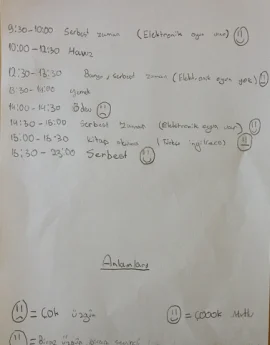 9:30-10:00 Serbest zaman (Elektronik eşya var)
10:00-12:30 Havuz
12:30-13:30 Banyo, serbest zaman (Elektronik eşya yok)
13:30-14:00 yemek
14:00-14:30 Ödev
14:30-15:00 Serbest zaman (Elektronik eşya var)
15:00-15:30 kitap okuma (Türkçe ingilizce)
15:30-23:00 Serbest
Anlamları
= Çok üzgün
= Çooook Mutlu
= Biraz üzgün